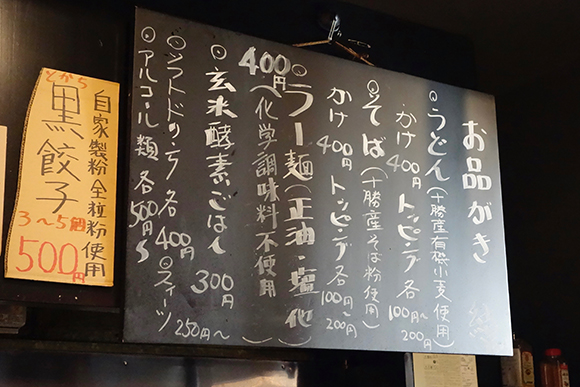 お品がき
◎うどん(十勝産有機小麦使用)
かけ400円 トッピング各100円〜200円
◎そば(十勝産そば粉使用)
かけ400円 トッピング各100円〜200円
◎ラー麺(正油・塩 他)
400円 (化学調味料不使用)
◎玄米酵素ごはん 300円
◎ソフトドリンク各400円 ◎スイーツ250円〜
◎アルコール類 各500円〜
自家製粉全粒粉使用
とかち
黒餃子
3〜5個
500円